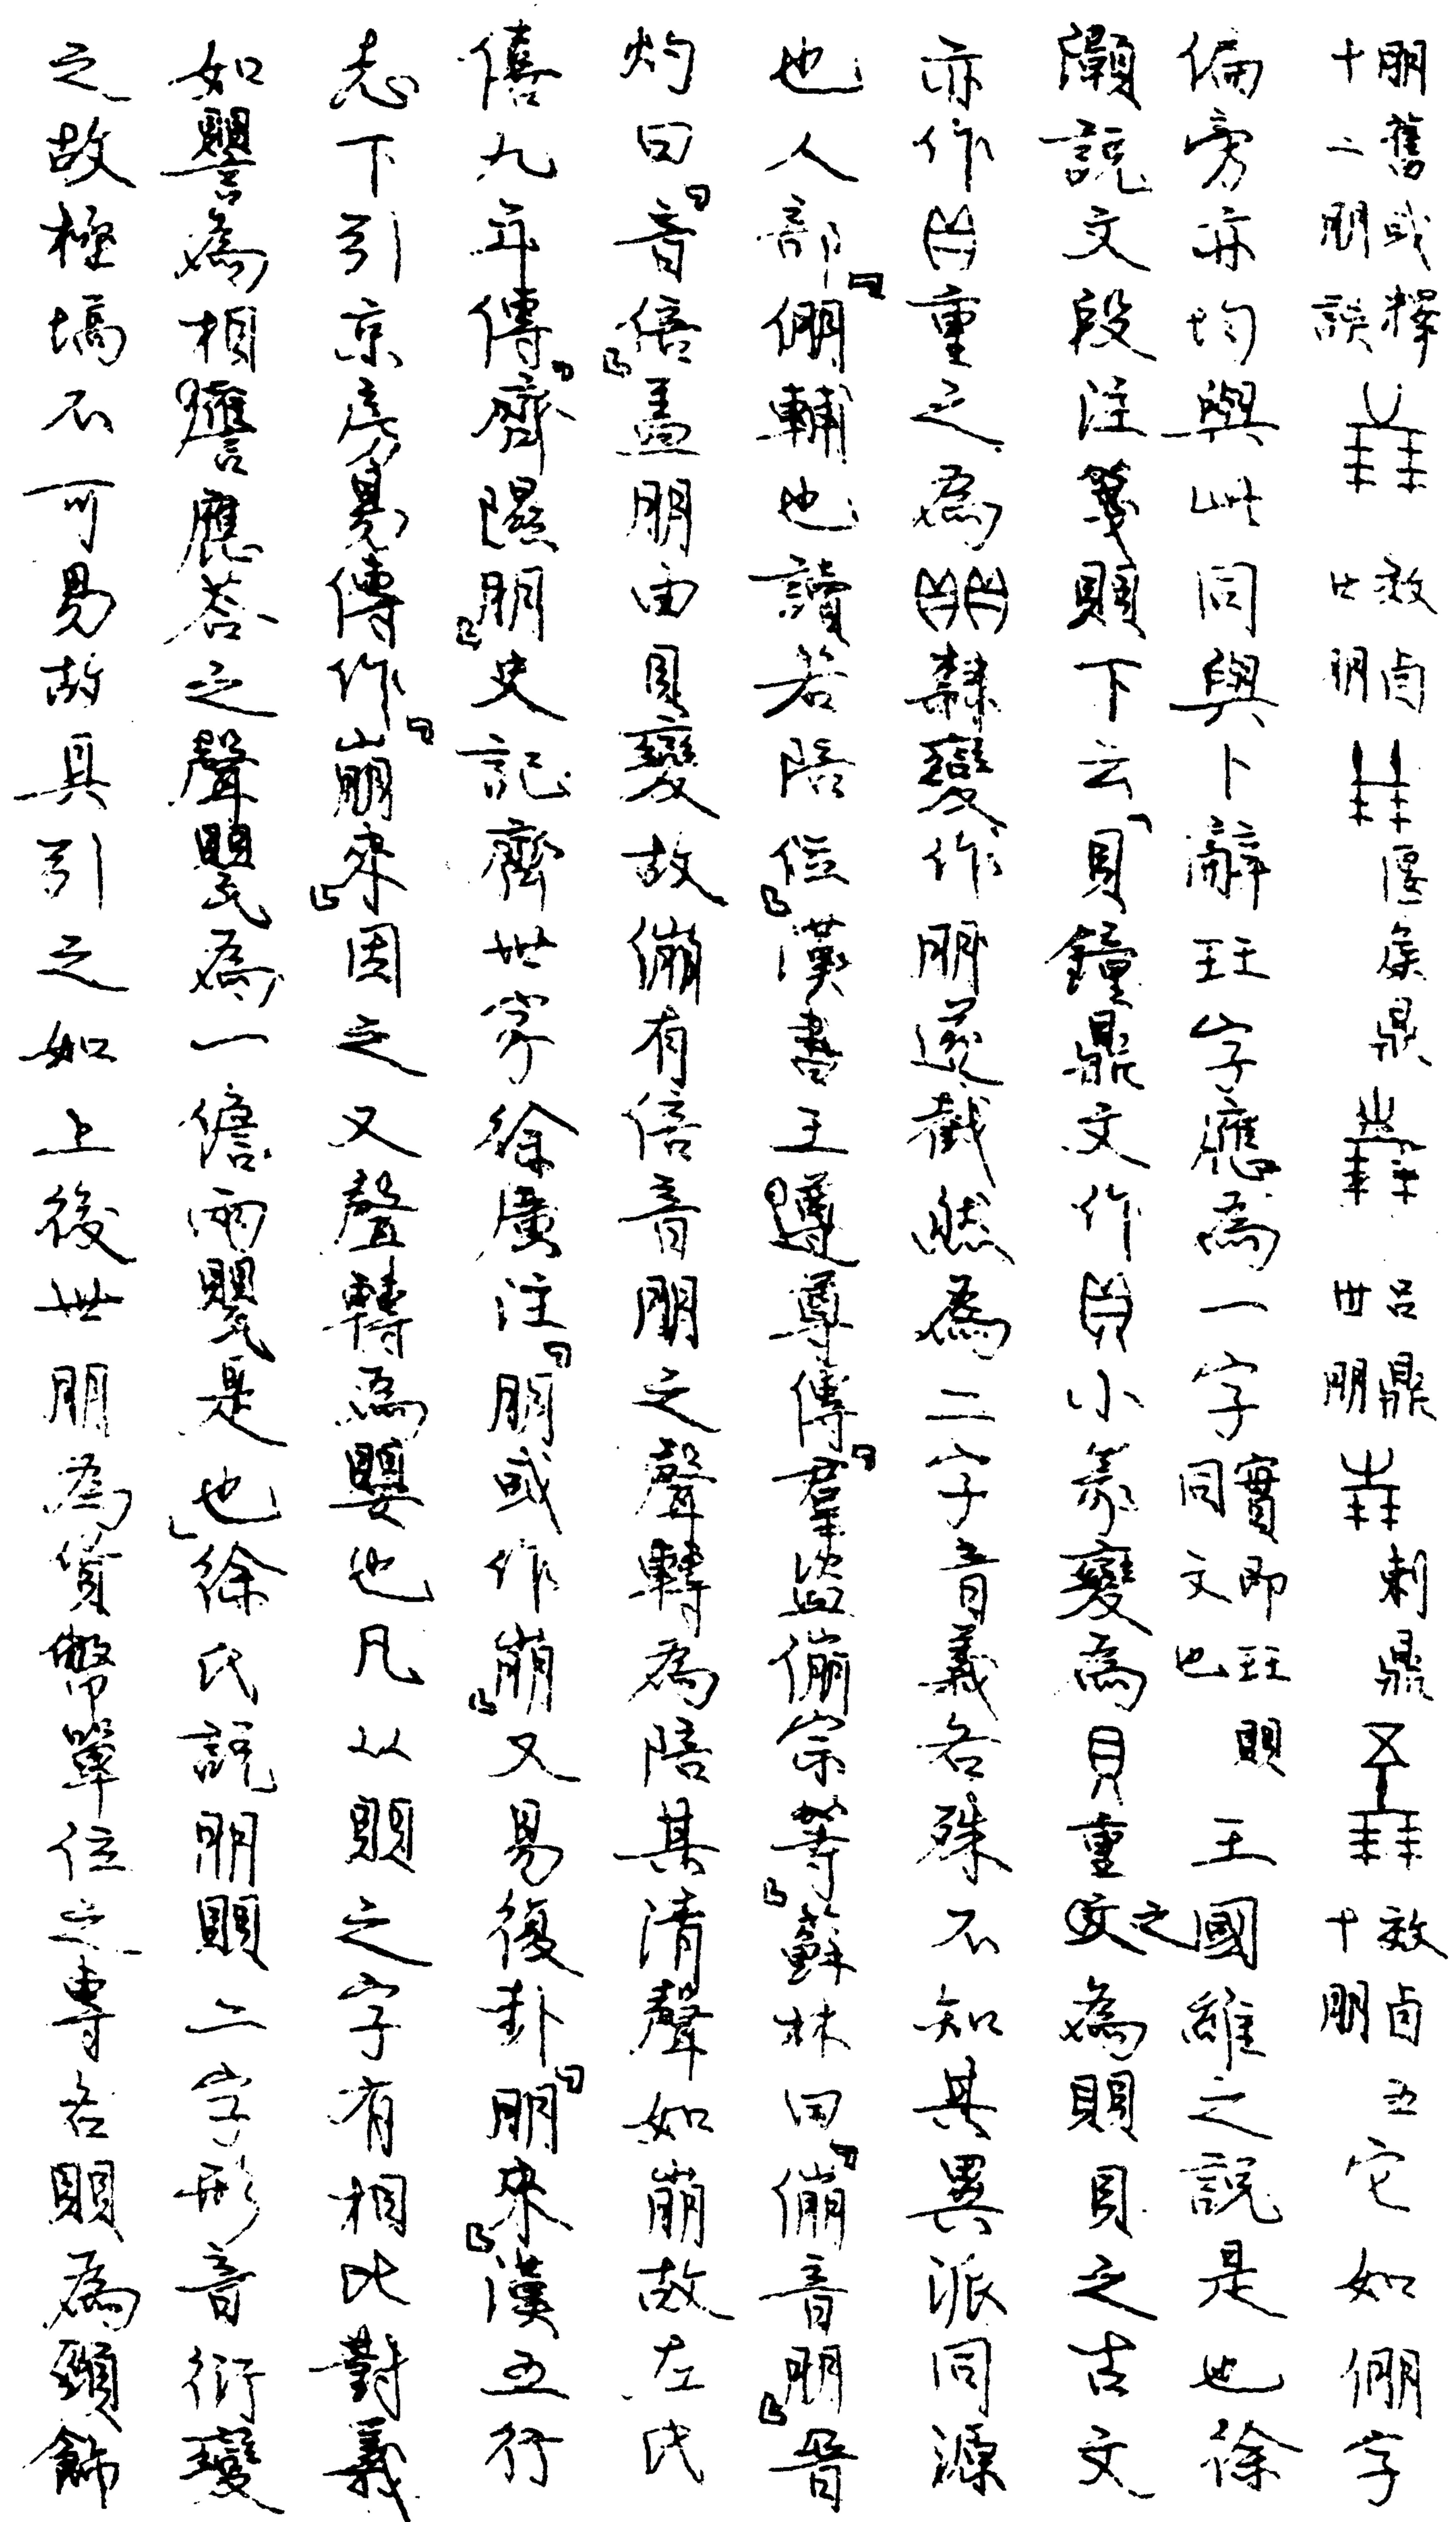 朋舊或擇十二朋誤 效卣廿朋 匽侯鼎 呂鼎卅朋 剌鼎 十朋效卣五 它如倗字
偏旁亦均與此同與卜辭玨字應為一字實即玨同文也 賏王國維之說是也徐
灝說文段注箋賏下云「貝鐘鼎文作 小篆變為貝重之為賏貝之古文
亦作 重之為 隸變作朋遂截然為二字音義各殊不知其異派同源
也人部『倗輔也讀若陪位』漢書王尊傳『羣盜傰宗等』蘇林曰『傰音朋』晉
灼曰『音倍』蓋朋由貝變故傰有倍音朋之聲轉為陪其清聲如崩故左氏
僖九年傳『齊隰朋』史記齊世家徐廣注『朋或作崩』又易復卦『朋來』漢五行
志下引京房易傳作『崩來』因之又聲轉為嬰也凡从賏之字有相比對義
如譻為相譍應荅之聲罌為一儋兩甖是也」徐氏說朋賏二字形音衍變
之故極塙不可易故具引之如上後世朋為貨幣單位之專名賏為頸飾